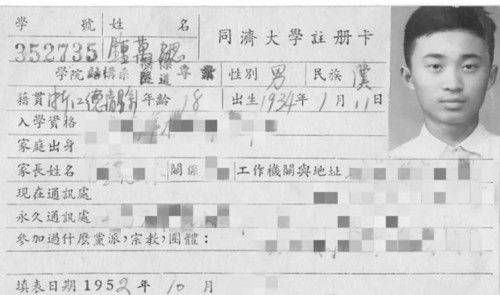 學 號 姓 名
352735 萬
同濟大學註册卡
學院 結構系 專業 性別 男 民族 漢
籍貫 浙江德清 年齡 18 出生 1934年 1月 11日
入學資格
家庭出身
家長姓名 關係 工作機關與地址
現在通訊處
永久通訊處
參加過什麼黨派，宗教，團體：
填表日期 1952年 10月